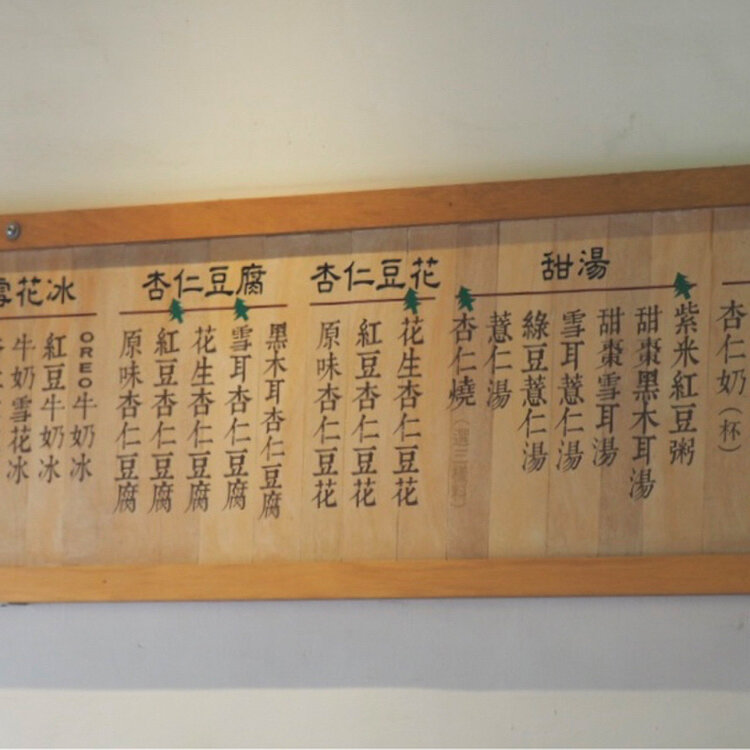 杏仁奶(杯)
甜湯
紫米紅豆粥
甜棗黑木耳湯
甜棗雪耳湯
雪耳薏仁湯
綠豆薏仁湯
薏仁湯
杏仁燒(選三樣料)
杏仁豆花
花生杏仁豆花
紅豆杏仁豆花
原味杏仁豆花
杏仁豆腐
黑木耳杏仁豆腐
雪耳杏仁豆腐
花生杏仁豆腐
紅豆杏仁豆腐
原味杏仁豆腐
雪花冰
OREO牛奶冰
紅豆牛奶冰
牛奶雪花冰